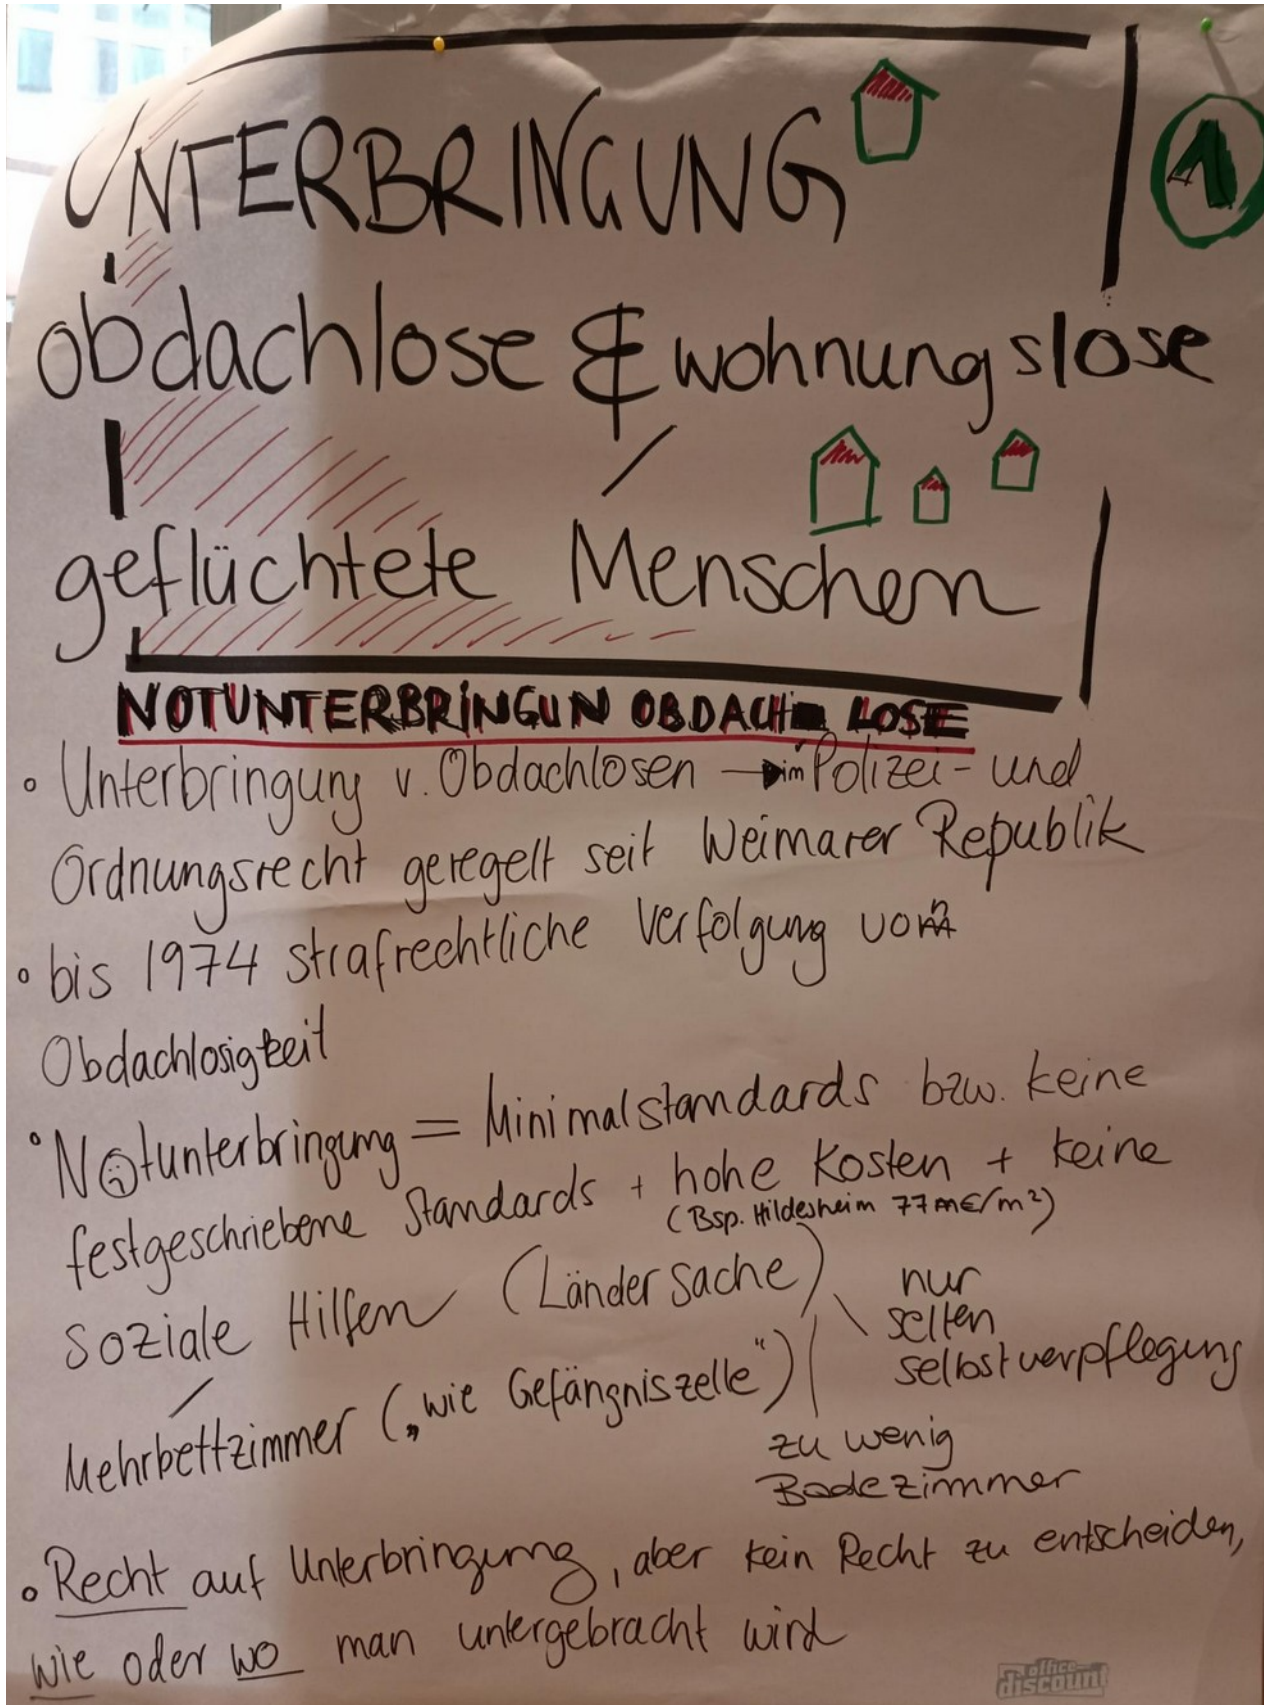 UNTERBRINGUNG
1
obdachlose & wohnungslose
/
geflüchtete Menschen
NOTUNTERBRINGUN OBDACH LOSE
° Unterbringung v. Obdachlosen → im Polizei- und
Ordnungsrecht geregelt seit Weimarer Republik
° bis 1974 strafrechtliche Verfolgung von
Obdachlosigkeit
° Notunterbringung = Minimalstandards bzw. keine
festgeschriebene Standards + hohe Kosten + keine
(Bsp. Hildesheim 77 €/m²)
soziale Hilfen (Ländersache)
nur
selten
selbstverpflegung
Mehrbettzimmer („wie Gefängniszelle")
zu wenig
Badezimmer
° Recht auf Unterbringung, aber kein Recht zu entscheiden,
wie oder wo man untergebracht wird
office
discount